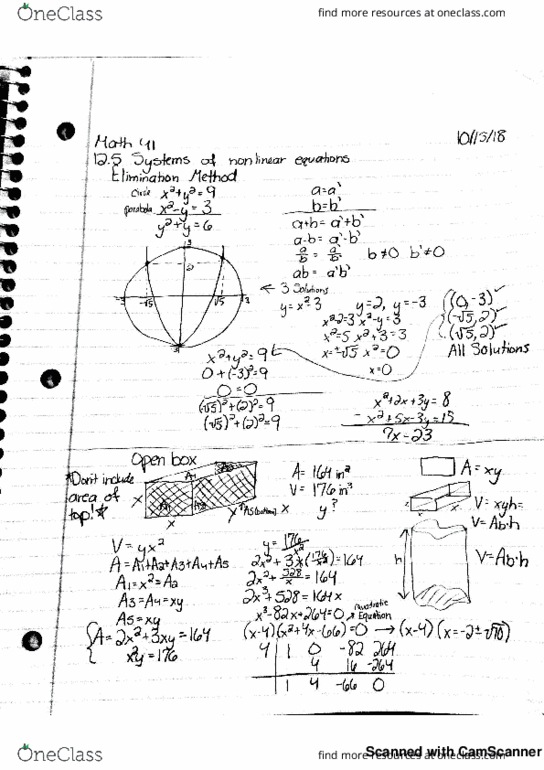 OneClass
find more resources at oneclass.com
10/15/18
Math 41
12.5 Systems of nonlinear equations
Elimination Method
Circle x²+y²=9
parabola x²-y=3
y²+y=6
a=a'
b=b'
a+b=a'+b'
a-b=a'-b'
b≠0 b'≠0
ab=a'b'
3
2
-3 -√5 √5 3
← 3 Solutions
y=x²-3
y=2, y=-3
x²-2=3 x²-y=3
x²=5 x²+3=3
x=±√5 x²=0
x=0
(0,-3)
(-√5,2)
(√5,2)
All Solutions
x²+y²=9
0+(-3)²=9
0=0
(-√5)²+(2)²=9
(√5)²+(2)²=9
x²+2x+3y=8
- x²+5x-3y=15
7x-23
Open box
*Don't include
area of
top!*
x
x
x
A5(bottom)
A=164 in²
V=176 in³
y?
A=xy
V=xyh=
V=Ab·h
h
V=Ab·h
V=yx²
A=A1+A2+A3+A4+A5
A1=x²=A2
A3=A4=xy
A5=xy
A=2x²+3xy=164
x²y=176
y=176/x²
2x²+3x(176/x²)=164
2x²+528/x=164
2x³+528=164x
x³-82x+264=0
Quadratic
Equation
(x-4)(x²+4x-66)=0 → (x-4)(x=-2±√70)
4 1 0 -82 264
4 16 -264
1 4 -66 0
OneClass
find more resources at oneclass.com
Scanned with CamScanner